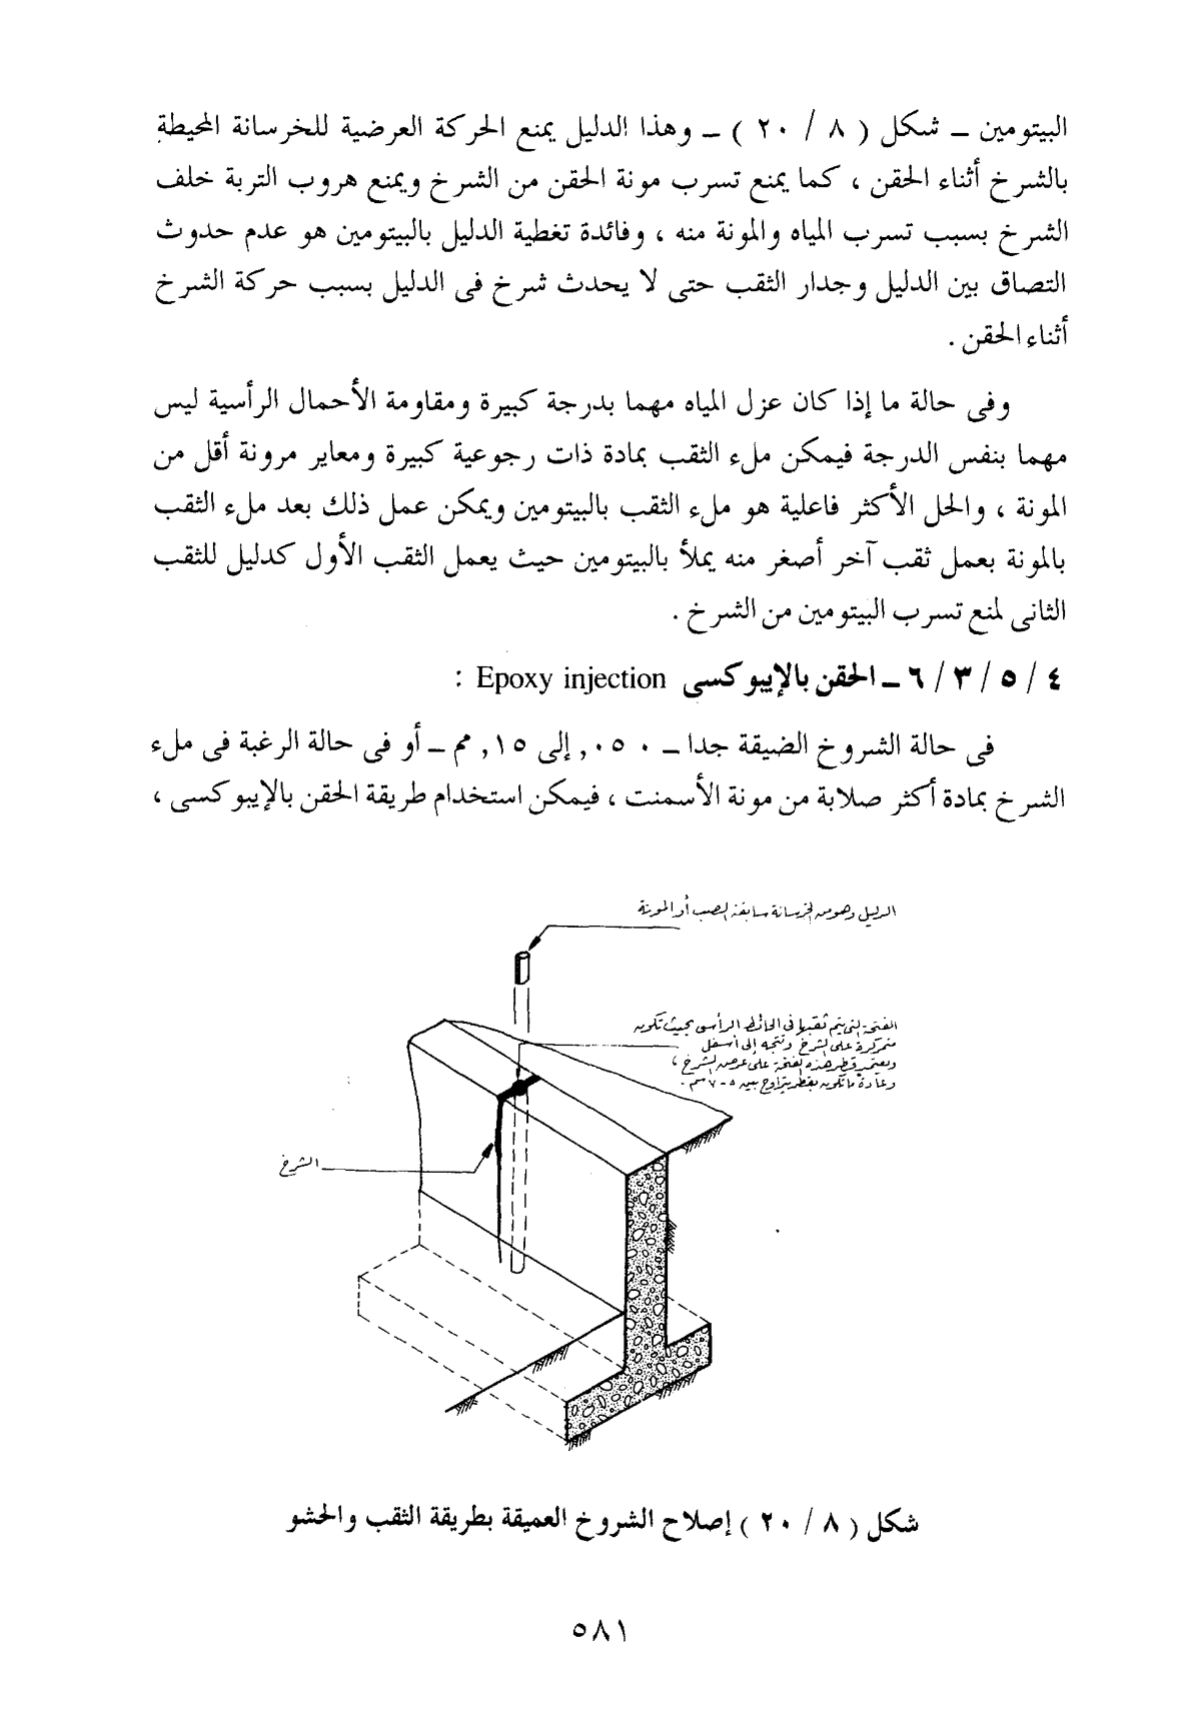 البيتومين ــ شكل ( ٨ / ٢٠ ) ــ وهذا الدليل يمنع الحركة العرضية للخرسانة المحيطة
بالشرخ أثناء الحقن ، كما يمنع تسرب مونة الحقن من الشرخ ويمنع هروب التربة خلف
الشرخ بسبب تسرب المياه والمونة منه ، وفائدة تغطية الدليل بالبيتومين هو عدم حدوث
التصاق بين الدليل وجدار الثقب حتى لا يحدث شرخ فى الدليل بسبب حركة الشرخ
أثناء الحقن .
وفى حالة ما إذا كان عزل المياه مهما بدرجة كبيرة ومقاومة الأحمال الرأسية ليس
مهما بنفس الدرجة فيمكن ملء الثقب بمادة ذات رجوعية كبيرة ومعاير مرونة أقل من
المونة ، والحل الأكثر فاعلية هو ملء الثقب بالبيتومين ويمكن عمل ذلك بعد ملء الثقب
بالمونة بعمل ثقب آخر أصغر منه يملأ بالبيتومين حيث يعمل الثقب الأول كدليل للثقب
الثانى لمنع تسرب البيتومين من الشرخ .
٤ / ٥ / ٣ /٦ ــ الحقن بالإيبوكسى Epoxy injection :
فى حالة الشروخ الضيقة جدا ــ ٠٥٠, إلى ١٥, مم ــ أو فى حالة الرغبة فى ملء
الشرخ بمادة أكثر صلابة من مونة الأسمنت ، فيمكن استخدام طريقة الحقن بالإيبوكسى ،
الدليل وهو من الخرسانة سابقة الصب أو المونة
الفتحة التى يتم ثقبها فى الحائط الرأسى بحيث تكون
متمركزة على الشرخ وتتجه إلى أسفل
ويعتمد قطر هذه الفتحة على عرض الشرخ ،
وعادة ما تكون بقطر يتراوح بين ٥ - ٧ سم .
الشرخ
شكل ( ٨ / ٢٠ ) إصلاح الشروخ العميقة بطريقة الثقب والحشو
٥٨١